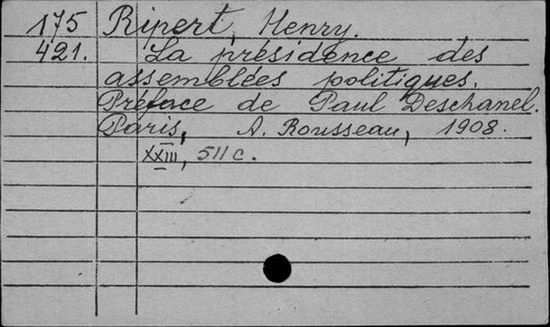 175 Ripert, Henry.
421. La présidence des
assemblées politiques.
Préface de Paul Deschanel.
Paris, A. Rousseau, 1908.
XXIII, 511 c.